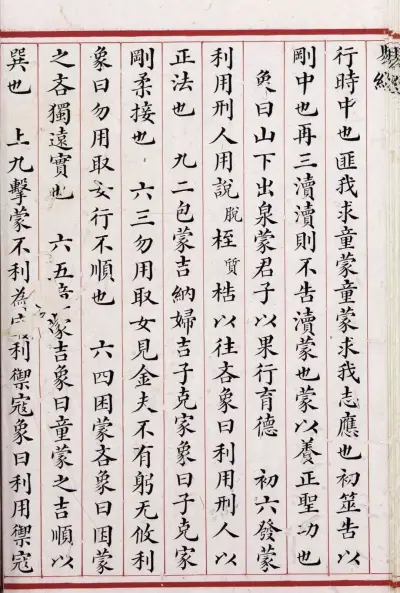 行時中也匪我求童蒙童蒙求我志應也初筮告以
剛中也再三瀆瀆則不告瀆蒙也蒙以養正聖功也
象曰山下出泉蒙君子以果行育德　初六發蒙
利用刑人用說脫桎質梏以往吝象曰利用刑人以
正法也　九二包蒙吉納婦吉子克家象曰子克家
剛柔接也　六三勿用取女見金夫不有躬无攸利
象曰勿用取女行不順也　六四困蒙吝象曰困蒙
之吝獨遠實也　六五蒙吉象曰童蒙之吉順以
巽也　上九擊蒙不利為利禦寇象曰利用禦寇